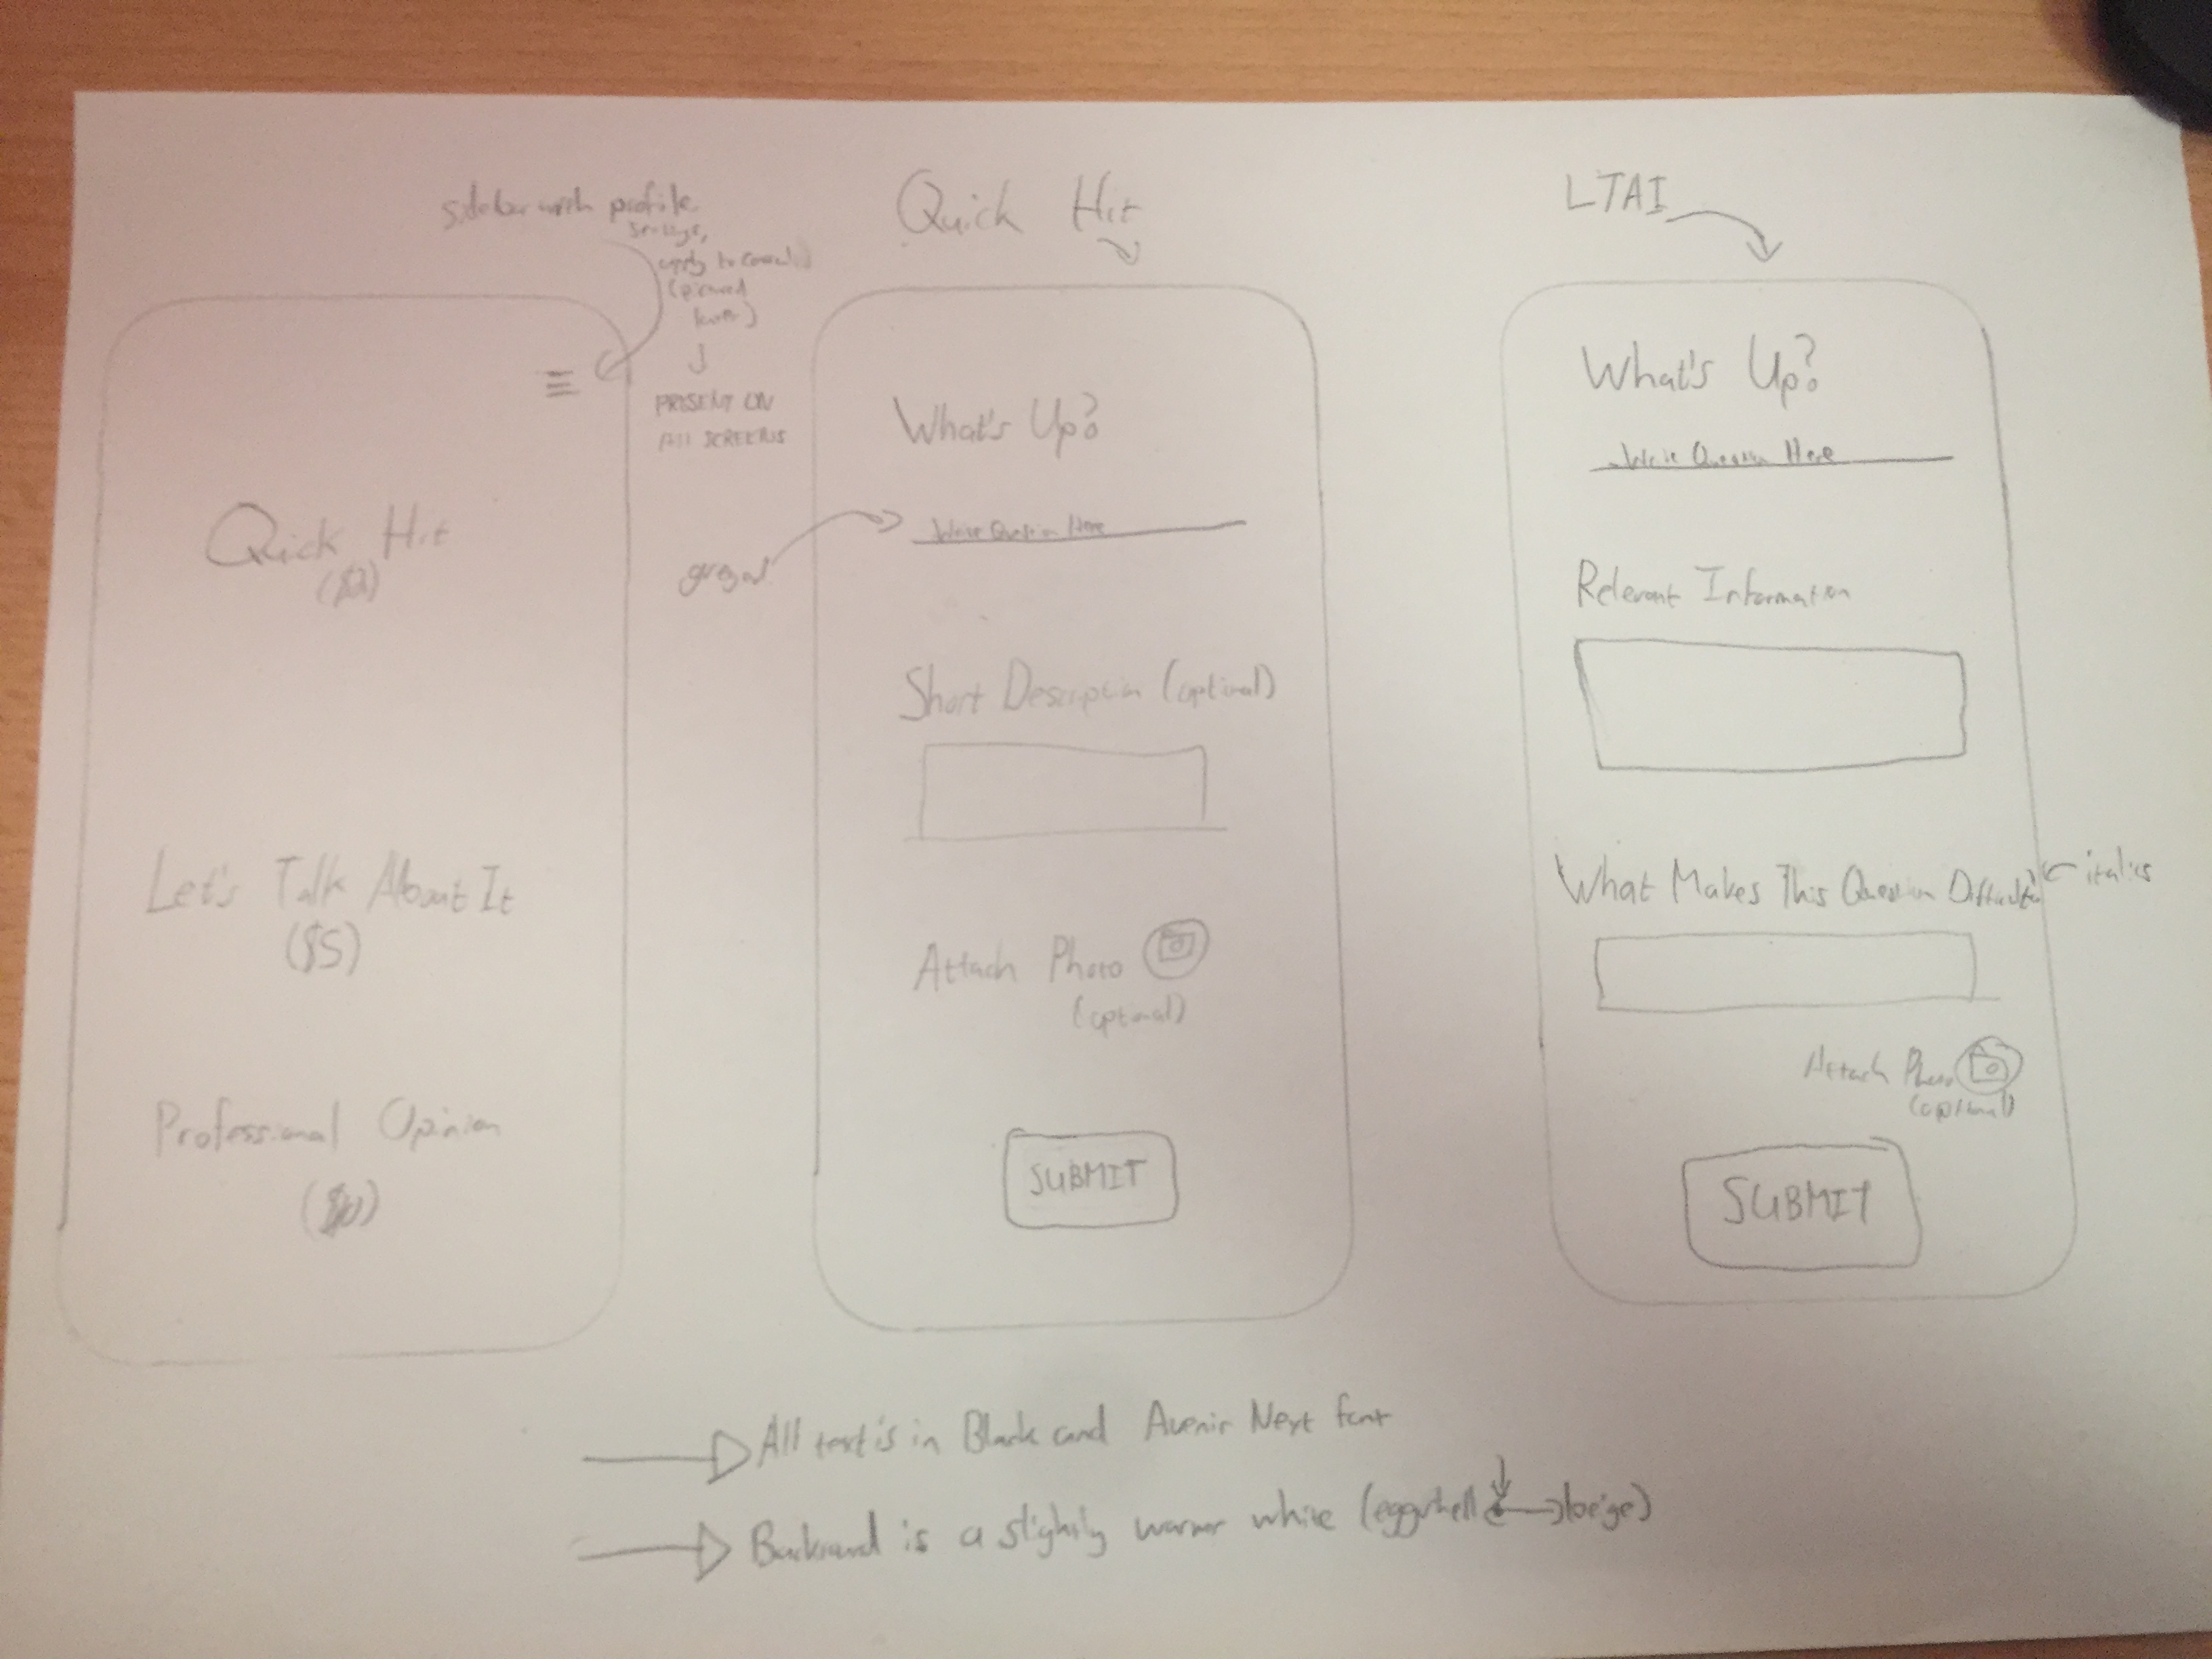 sidebar with profile
settings,
apply to
PRESENT ON
All SCREENS
Quick Hit
($2)
Let's Talk About It
($5)
Professional Opinion
Quick Hit
What's Up?
Write Question Here
greyed
Short Description (optional)
Attach Photo
(optional)
SUBMIT
LTAI
What's Up?
Write Question Here
Relevant Information
What Makes This Question Difficult?
italics
Attach Photo
(optional)
SUBMIT
All text is in Black and Avenir Next font
is a slightly warmer white (eggshell beige)